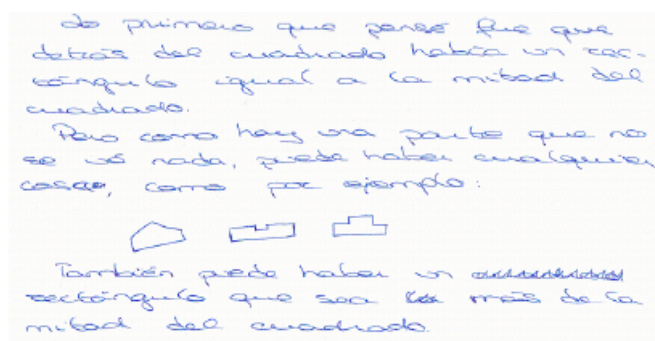 Lo primero que pensé fue que
detrás del cuadrado había un rec-
tángulo igual a la mitad del
cuadrado.
Pero como hay una parte que no
se vé nada, puede haber cualquier
cosa, como por ejemplo:
También puede haber un
rectángulo que sea más de la
mitad del cuadrado.